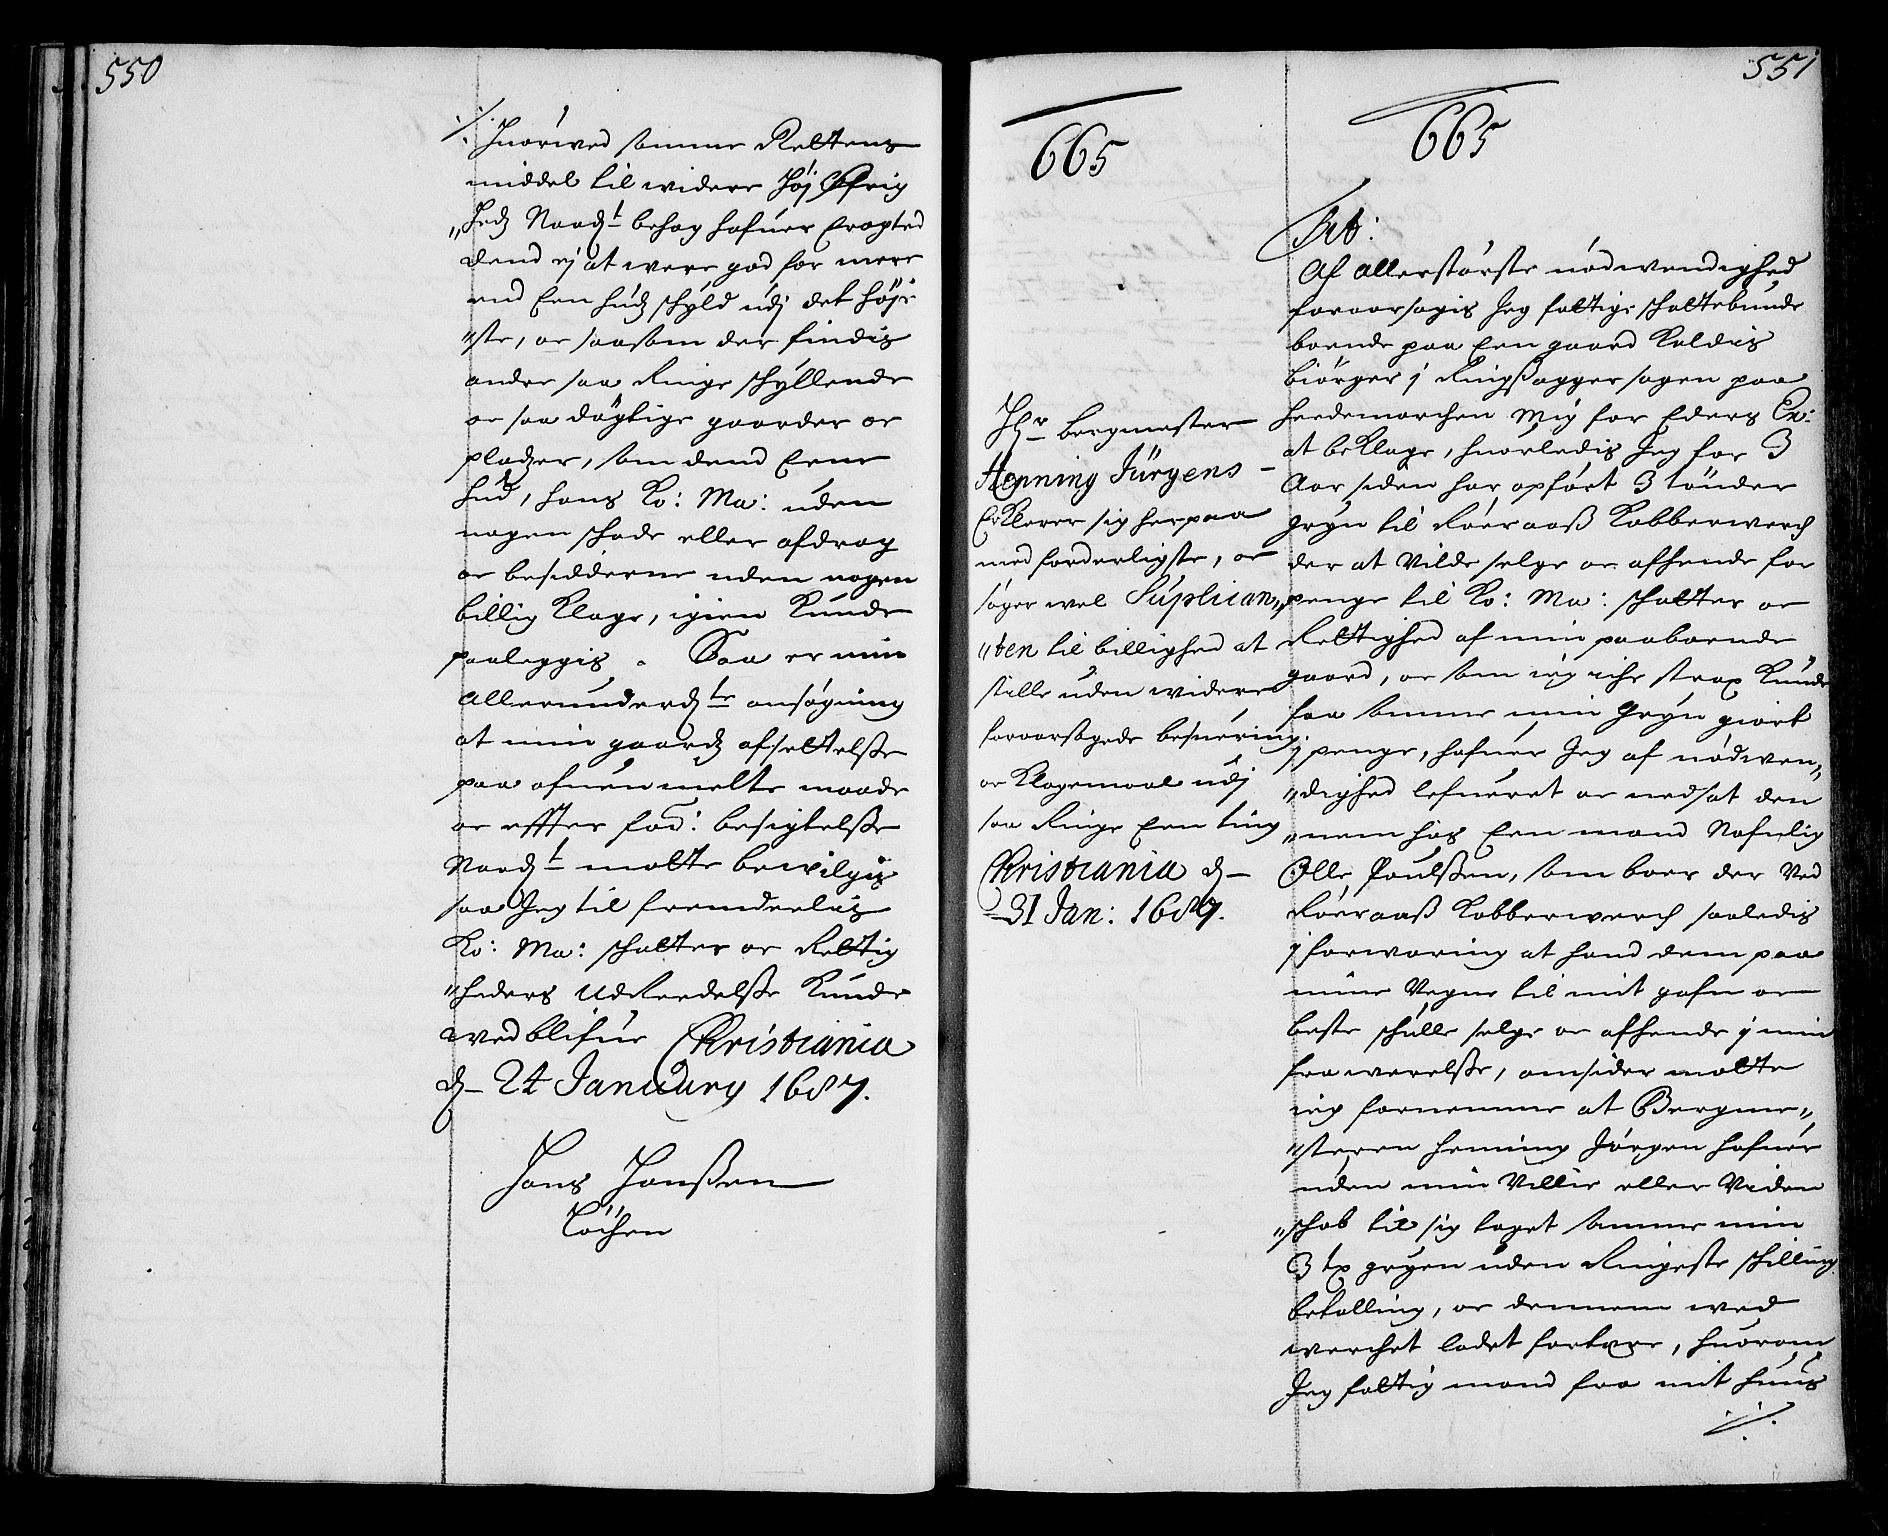 550
./. Huorved samme Rettens
middel til widere Høj Øfrig
„Hedz Naadt behag hafuer Eragted
dend ej at were god for mere
end Een hudz schyld udj det høje
„ste, oc saasom der findis
andre saa Ringe schyllende
oc saa døgtige gaarder oc
pladzer, som dend Eene
hud, hans Ko: Ma: uden
nogen schade eller afdrag
oc besidderne uden nogen
billig Klage, igien Kunde
paaleggis. Saa er min
Allerunderdte ansøgning
at min gaardz afsettelsse
paa ofuenmelte maade
oc effter fod: besigtelsse
Naadt motte bewilgis
saa Jeg til fremdeelis
Ko: Ma: schatter oc Rettig
„heders Udreedelsse Kunde
wed blifue Christiania
d– 24 January 1687.
Hans Hanssen
Löchen
551
665
Hr Bergmester
Henning Jürgens –
Erklerer sig herpaa
med forderligste, oc
søger wel Suplican„
„ten til billighed at
stille uden widere
foraarsagede besuering
oc Klagemaal udj
saa Ringe Een ting
Christiania d–
31 Jan: 1687.
665
Af allerstørste nødwendighed
foraarsagis Jeg fattige schattebunde
boende paa Een gaard Kaldis
Biørger j Ringsagger sogen paa
Heedemarchen Mig for Eders Ex:
at beklage, huorledis Jeg for 3
Aar siden har opført 3 tönder
gryn til Röeraaß Kobberwerch
der at Vilde selge oc afhende for
penge til Ko: Ma: schatter oc
Rettighed af min paaboende
gaard, oc som ieg iche strax Kunde
faa samme min Gryn giort
j penge, hafuer Jeg af nødwen„
„dighed lefueret oc nedsat den
„nem hos Een mand Nafnlig
Olle Poulssen, som boer der Ved
Röeraaß Kobberwerch saaledis
j forwaring at hand dem paa
mine Vegne til mit gafn oc
beste schulle selge oc afhende j min
fra werelsse, omsider motte
ieg fornemme at Bergme„
„steren Henning Jørgen hafuer
uden min Villie eller Viden
„schab til sig taget samme min
3 tr gryen uden Ringeste schilling
betalling, oc dennem wed
werchet ladet fortære, huorom
Jeg fattig mand fra mit huus
./.